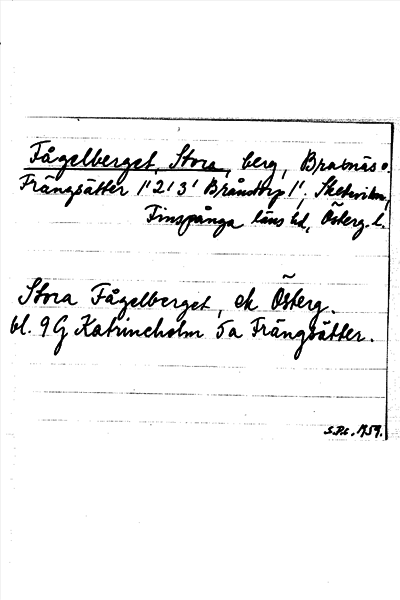 Fågelberget, Stora, berg, Bratnäs o.
Frängsätter 1¹2¹3¹ Bråntorp 1¹, Skedevi sn,
Finspånga läns hd, Österg. l.
Stora Fågelberget, ek Österg.
bl. 9G Katrineholm 5a Frängsätter.
1959.